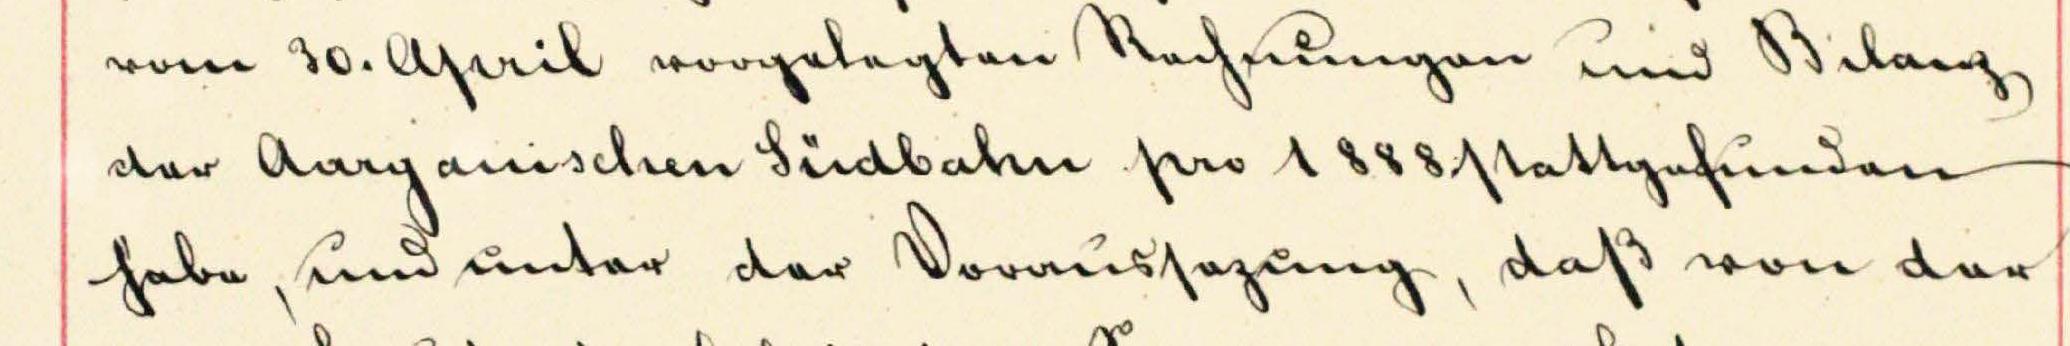 vom 30. April vorgelegten Rechnungen und Bilanz
der Aargauischen Südbahn pro 1888 stattgefunden
habe, und unter der Voraussezung, daß von der